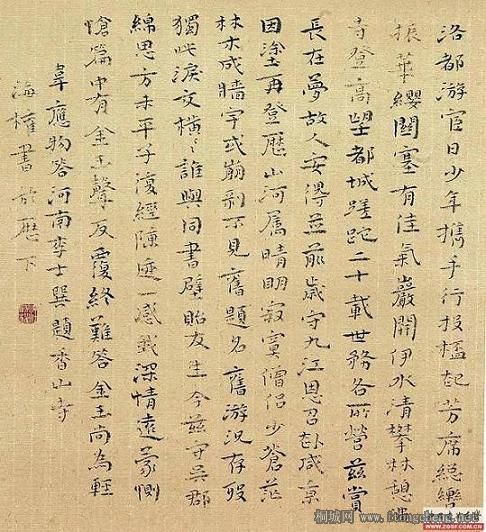 洛都游宦日少年攜手行投杯起芳席總轡
振華纓關塞有佳氣巖開伊水清攀林憩
寺登高望都城蹉跎二十載世務各所營茲賞
長在夢故人安得並前歲守九江恩召赴咸京
因塗再登歷山河屬晴明寂寞僧侶少蒼茫
林木成牆宇或崩剥不見舊題名舊游況存殁
獨此淚交橫〻誰與同書壁貽友生今茲守吳郡
綿思方未平子復經陳迹一感我深情遠蒙惻
愴篇中有金玉聲反覆終難答金玉尚為輕
韋應物答河南李士巽題香山寺
海權書於歷下
桐城网
WWW.ZGSF.COM.CN